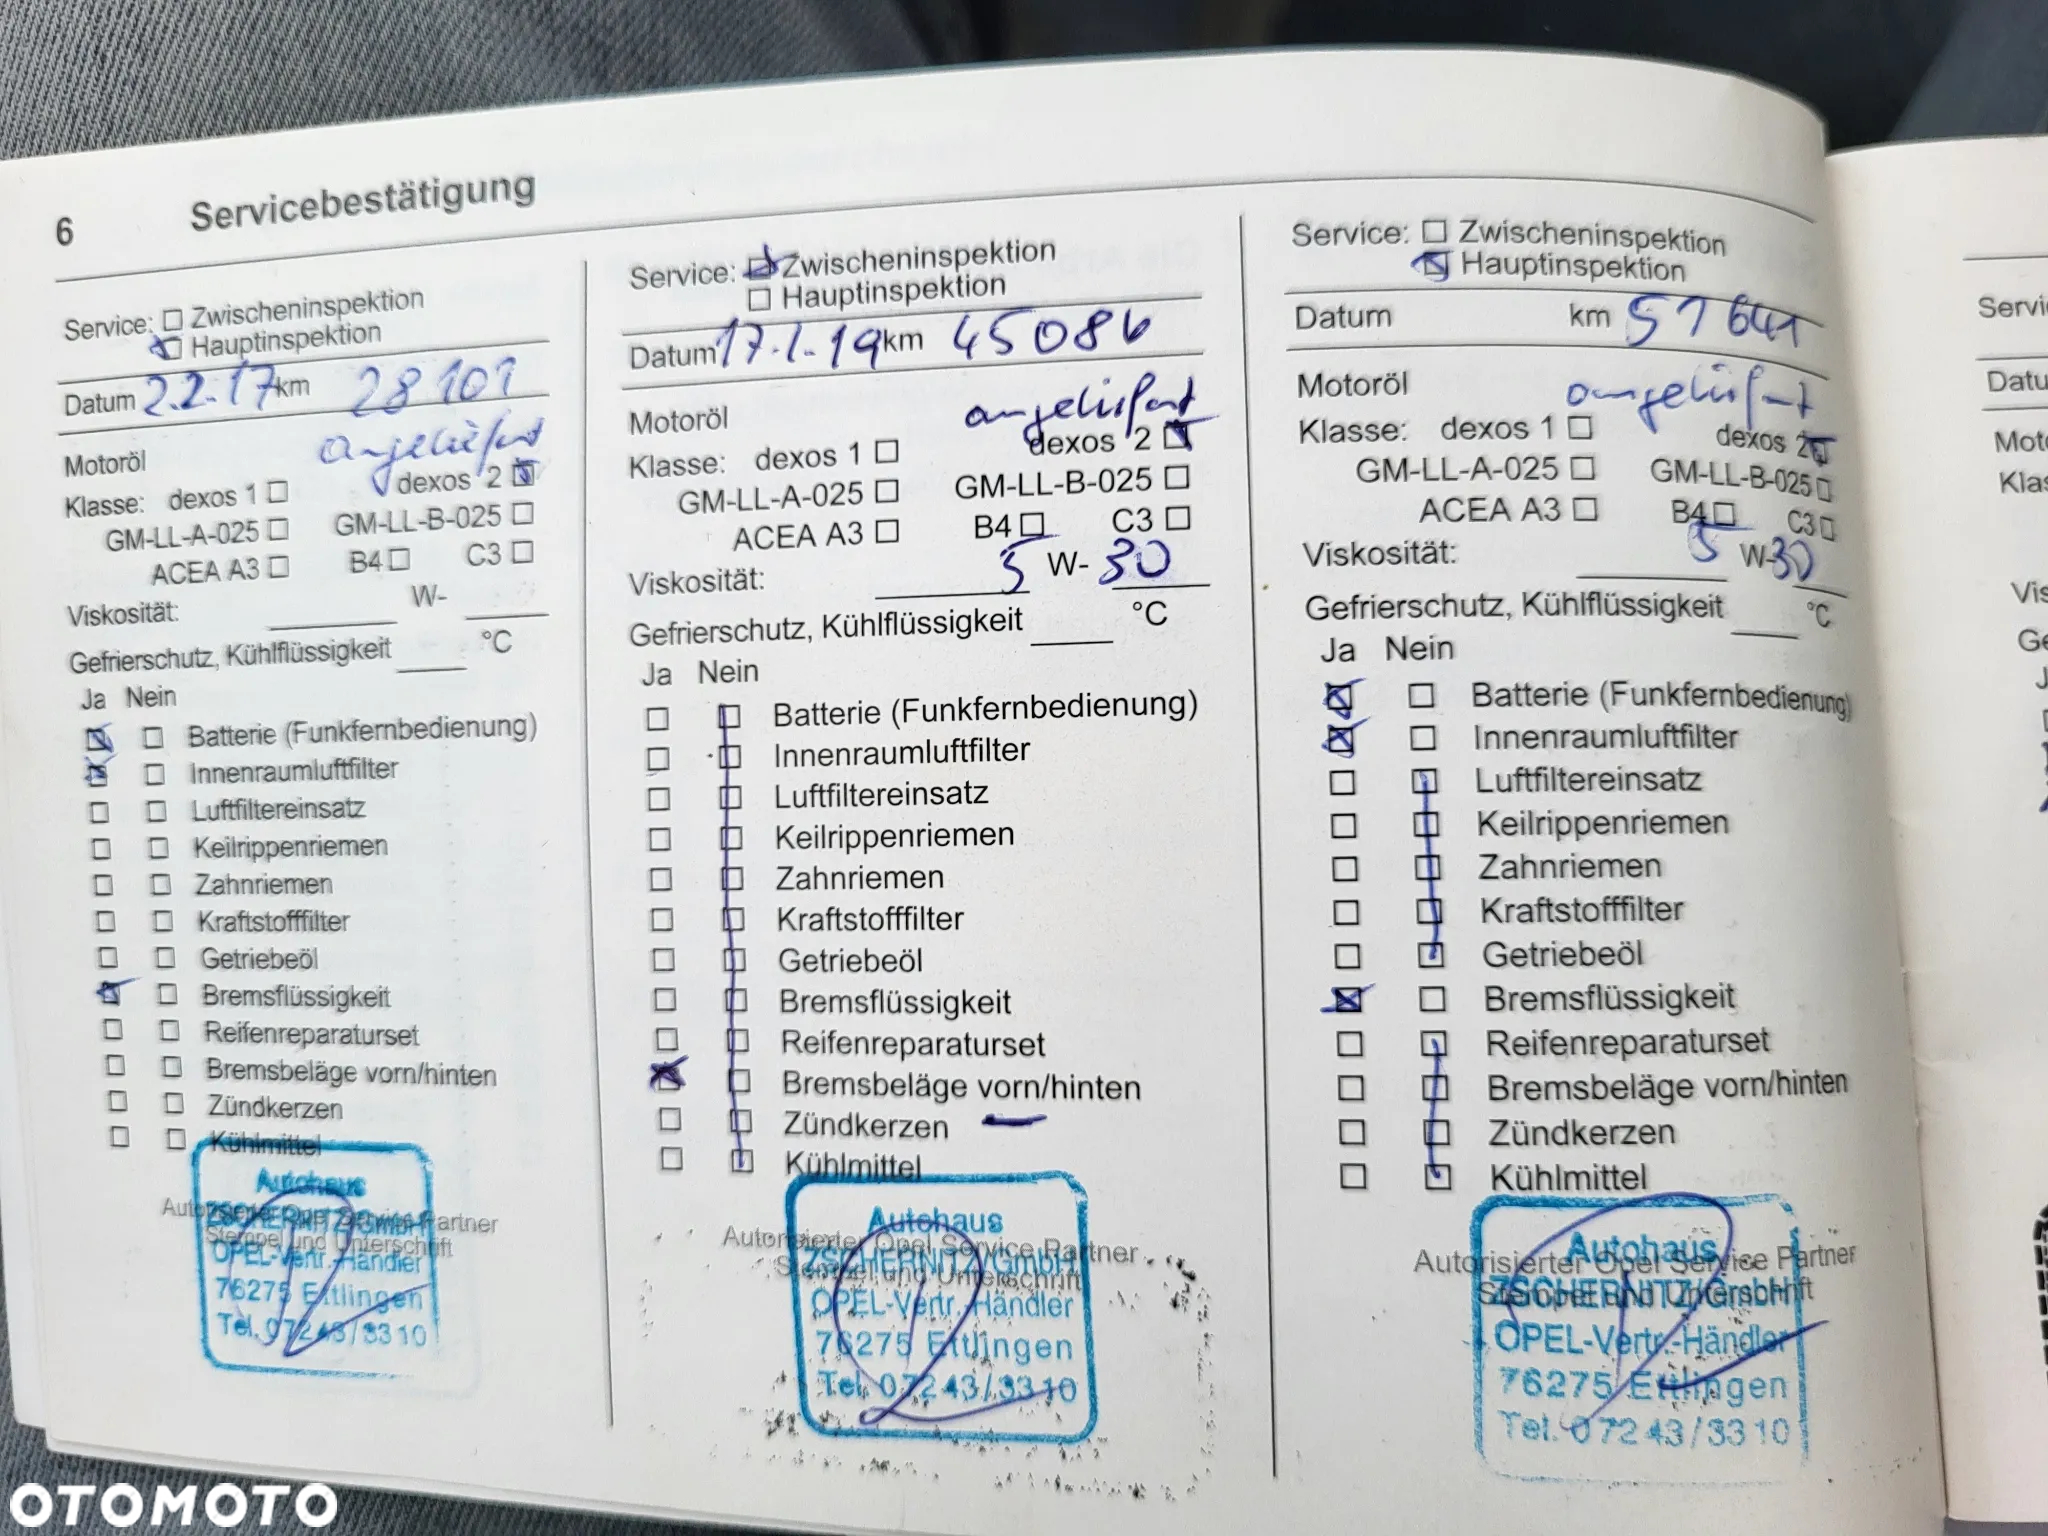 6 Servicebestätigung
Service: Zwischeninspektion
Hauptinspektion
Datum 2.2.17 km 28101
angeliefert
Motoröl
Klasse: dexos 1 dexos 2
GM-LL-A-025 GM-LL-B-025
ACEA A3 B4 C3
Viskosität: W-
Gefrierschutz, Kühlflüssigkeit °C
Ja Nein
Batterie (Funkfernbedienung)
Innenraumluftfilter
Luftfiltereinsatz
Keilrippenriemen
Zahnriemen
Kraftstofffilter
Getriebeöl
Bremsflüssigkeit
Reifenreparaturset
Bremsbeläge vorn/hinten
Zündkerzen
Kühlmittel
Autorisierter Opel Service Partner
Stempel und Unterschrift
Autohaus
ZSCHERNITZ GmbH
OPEL-Vertr.-Händler
76275 Ettlingen
Tel. 07243/3310
Service: Zwischeninspektion
Hauptinspektion
Datum 17.1.19 km 45086
angeliefert
Motoröl
Klasse: dexos 1 dexos 2
GM-LL-A-025 GM-LL-B-025
ACEA A3 B4 C3
Viskosität: 5 W- 30
Gefrierschutz, Kühlflüssigkeit °C
Ja Nein
Batterie (Funkfernbedienung)
Innenraumluftfilter
Luftfiltereinsatz
Keilrippenriemen
Zahnriemen
Kraftstofffilter
Getriebeöl
Bremsflüssigkeit
Reifenreparaturset
Bremsbeläge vorn/hinten
Zündkerzen
Kühlmittel
Autorisierter Opel Service Partner
Stempel und Unterschrift
Autohaus
ZSCHERNITZ GmbH
OPEL-Vertr.-Händler
76275 Ettlingen
Tel. 07243/3310
Service: Zwischeninspektion
Hauptinspektion
Datum km 51641
angeliefert
Motoröl
Klasse: dexos 1 dexos 2
GM-LL-A-025 GM-LL-B-025
ACEA A3 B4 C3
Viskosität: 5 W-30
Gefrierschutz, Kühlflüssigkeit °C
Ja Nein
Batterie (Funkfernbedienung)
Innenraumluftfilter
Luftfiltereinsatz
Keilrippenriemen
Zahnriemen
Kraftstofffilter
Getriebeöl
Bremsflüssigkeit
Reifenreparaturset
Bremsbeläge vorn/hinten
Zündkerzen
Kühlmittel
Autorisierter Opel Service Partner
Stempel und Unterschrift
Autohaus
ZSCHERNITZ GmbH
OPEL-Vertr.-Händler
76275 Ettlingen
Tel. 07243/3310
Servi
Datu
Moto
Klas
Vis
Ge
OTOMOTO